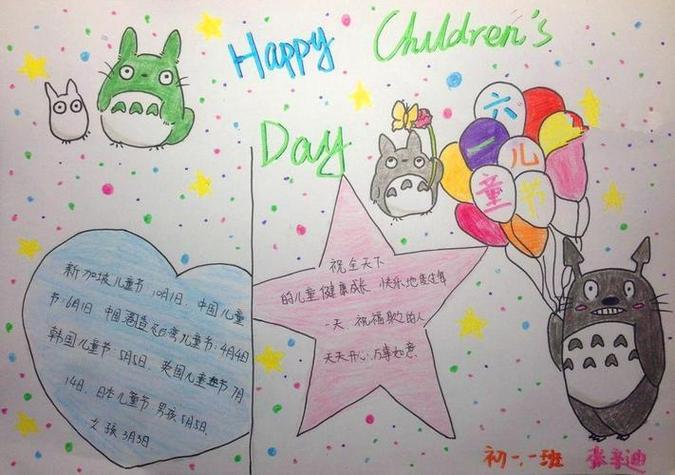 Happy Children's
Day
六
一儿
童节
新加坡儿童节 10月1日. 中国儿童
节:6月1日 中国 台湾儿童节:4月4日
韩国儿童节:5月5日. 英国儿童 节 7月
14日. 日本儿童节 男孩:5月5日.
女孩3月3日
祝全天下
的儿童健康成长 快乐地度过每
一天. 祝福 的人
天天开心,万事如意.
初一.一班 张 迪